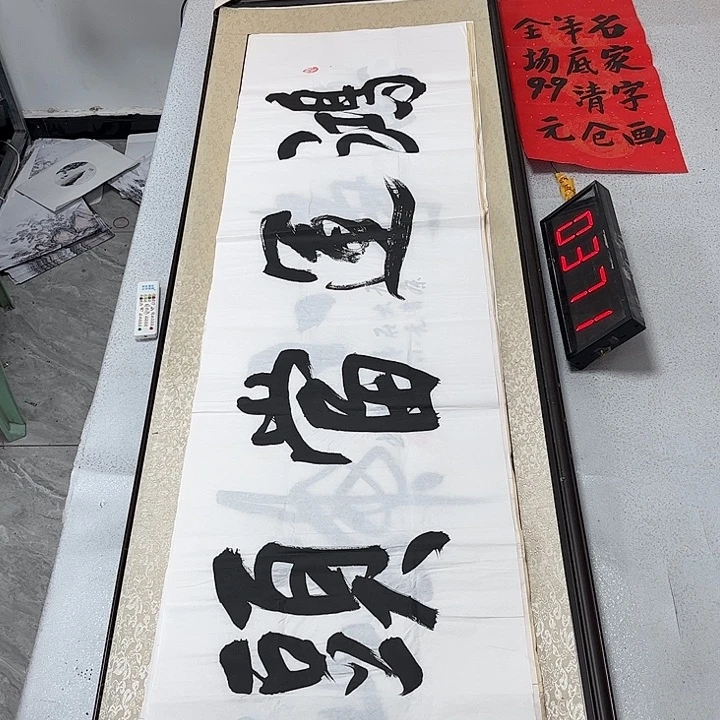 鴻運當頭
名家字画
年底清仓
全场99元
0371